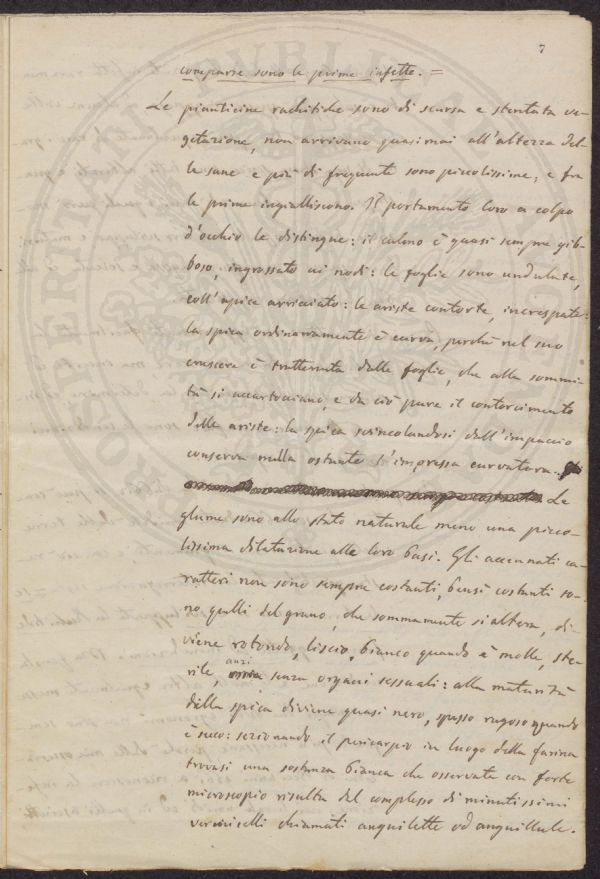 7
comparse sono le prime infette. =
Le pianticine rachitiche sono di scarsa e stentata ve-
getazione, non arrivano quasi mai all'altezza del-
le sane e più di frequente sono picolissime, e fra
le prime ingialliscono. Il portamento loro a colpo
d'occhio le distingue: il culmo è quasi sempre gib-
boso, ingrossato ai nodi: le foglie sono undulate,
coll'apice arricciato: le ariste contorte, increspate:
la spica ordinariamente è curva, perchè nel suo
crescere è trattenuta dalle foglie, che alla sommi-
tà si accartocciano, e da ciò pure il contorcimento
delle ariste: la spica svincolandosi dall'impaccio
conserva nulla ostante l'impressa curvatura.
Le
glume sono allo stato naturale meno una picco-
lissima dilatazione alle loro basi. Gli accennati ca-
ratteri non sono sempre costanti, bensì costanti so-
no quelli del grano, che sommamente si altera, di-
viene rotondo, liscio, bianco quando è molle, ste-
rile, anzi senza organi sessuali: alla maturità
della spica diviene quasi nero, spesso rugoso quando
è secco: sezionando il pericarpio in luogo della farina
trovasi una sostanza bianca che osservata con forte
microscopio risulta del complesso di minutissimi
vermicelli chiamati anguilette od anguillule.